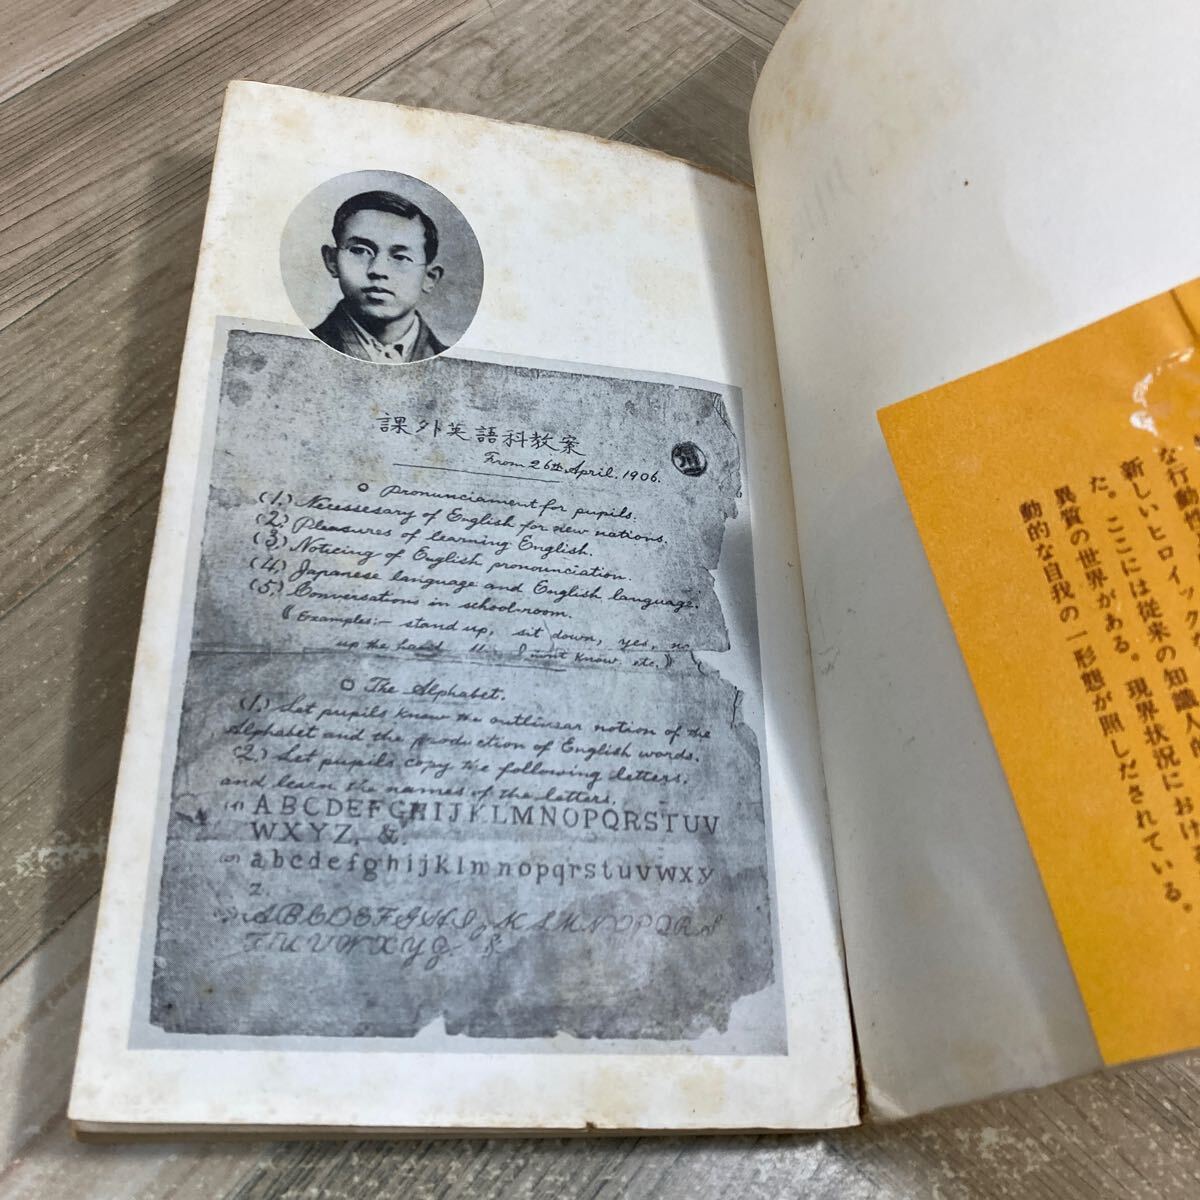 課外英語科教案
From 26th April, 1906.
○ Pronunciament for pupils.
(1.) Necessesary of English for new nations.
(2.) Pleasures of learning English.
(3.) Noticing of English pronounciation.
(4.) Japanese language and English language.
(5.) Conversations in schoolroom.
(Examples:— stand up, sit down, yes, no
up the hand I know, etc.)
○ The Alphabet.
(1.) Let pupils know the outlinear notion of the
Alphabet and the production of English words.
(2.) Let pupils copy the following letters,
and learn the names of the letters.
A B C D E F G H I J K L M N O P Q R S T U V
W X Y Z, &.
a b c d e f g h i j k l m n o p q r s t u v w x y
z.
A B C D E F G H I J K L M N O P Q R S
T U V W X Y Z. &
な行動
新しいヒロイック
た。ここには従来の知識人
異質の世界がある。現界状況におけ
動的な自我の一形態が照しだされている。